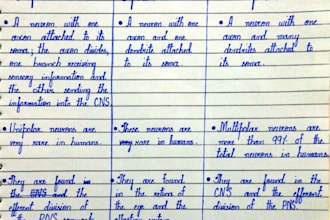 • A neuron with one
axon attached to its
soma; the axon divides,
one branch receiving
sensory information and
the other sending the
information into the CNS.
• A neuron with one
axon and one
dendrite attached
to its soma.
• A neuron with one
axon and many
dendrites attached to
its soma.
• Unipolar neurons are
very rare in humans.
• These neurons are
very rare in humans.
• Multipolar neurons are
more than 99% of the
total neurons in humans.
• They are found in
the CNS and the
efferent division of
• They are found
in the retina of
the eye and the
• They are found in the
CNS and the efferent
division of the PNS.